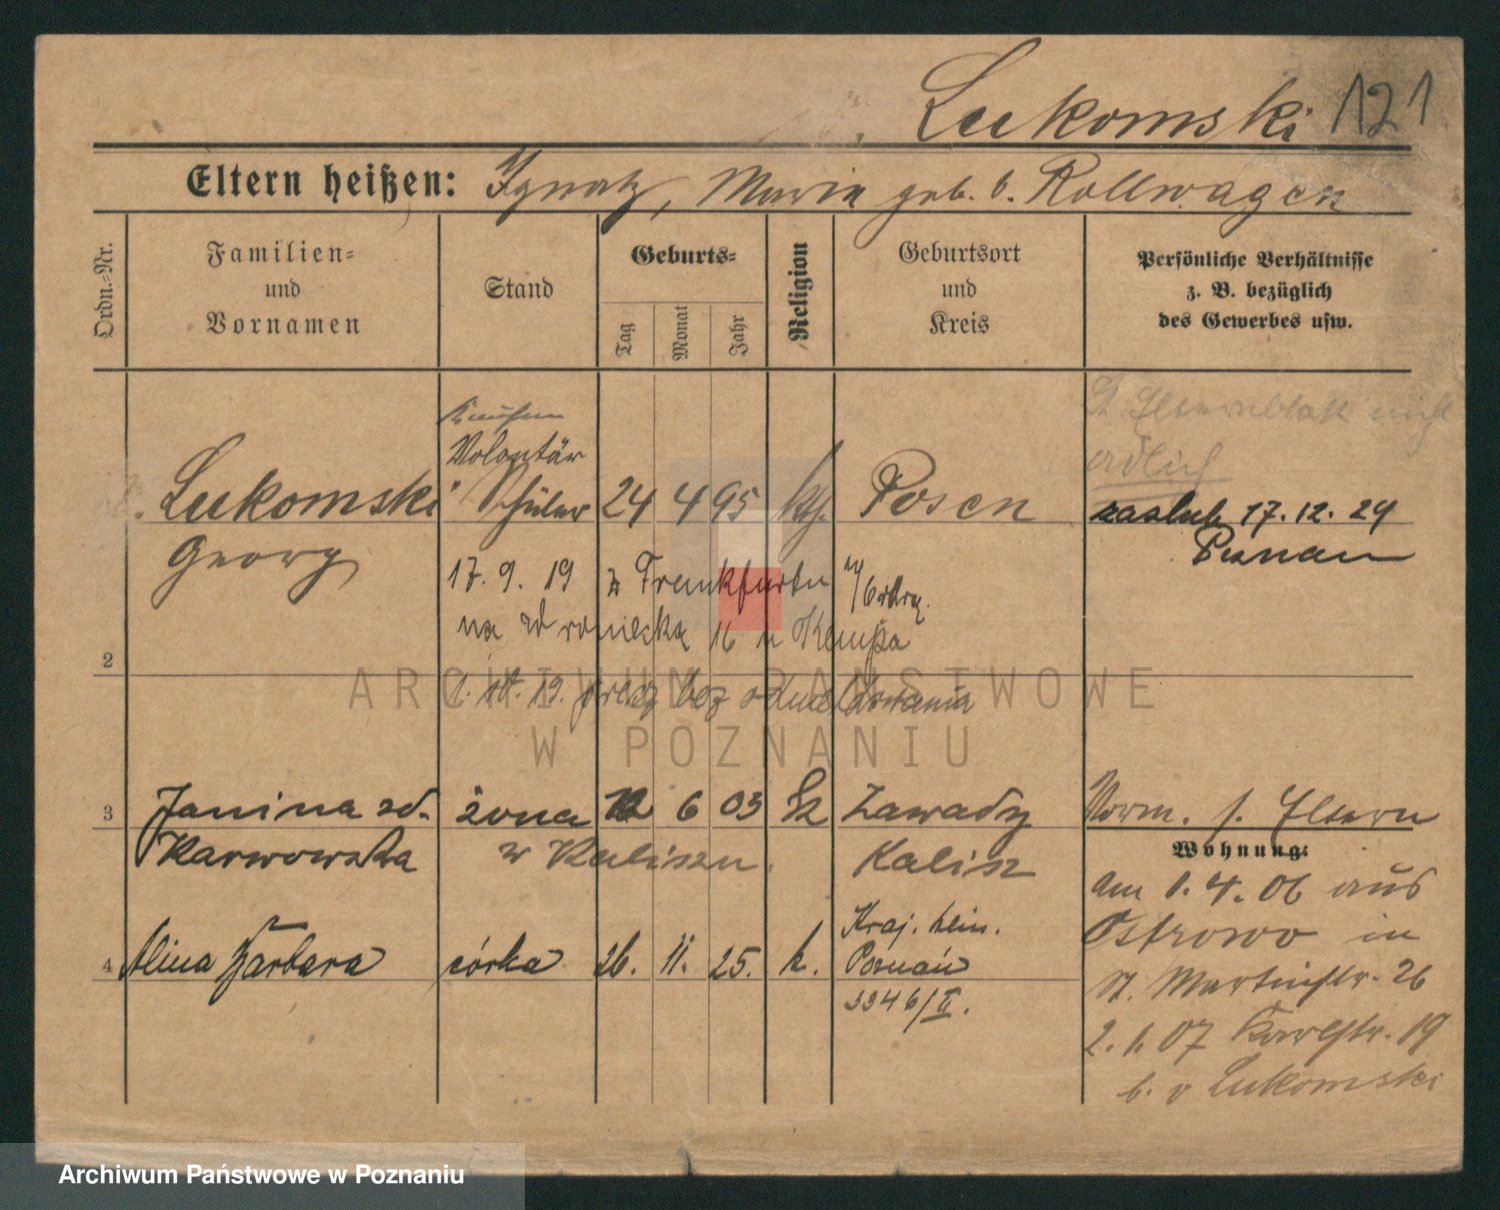 Lukomski 121
Eltern heißen: Ignatz, Maria geb. v. Rollwagen
Ordn.-Nr.
Familien-
und
Vornamen
Stand
Geburts-
Tag
Monat
Jahr
Religion
Geburtsort
und
Kreis
Persönliche Verhältnisse
z. B. bezüglich
des Gewerbes usw.
Lt. Elternblatt nicht
adlich
Volontär
Lukomski Schüler 24 4 95 kth. Posen
Georg
zaślub. 17. 12. 24
Poznań
17. 9. 19 z Frankfurtu n/Odrą.
na Wroniecką 16 u Klempa
2
10. 19. bez odmeldowania
ARCHIWUM PAŃSTWOWE
W POZNANIU
3 Janina zd. żona 12 6 03 Zawady
Karwowska w Kaliszu. Kalisz
Vorm. s. Eltern
Wohnung:
am 1. 4. 06 aus
Ostrowo in
St. Martinstr. 26
2. 1. 07 Karlstr. 19
b. v Lukomski
4 Alina Barbara córka 26. 11. 25. k. Kraj. klin.
Poznań
3346/II.
Archiwum Państwowe w Poznaniu